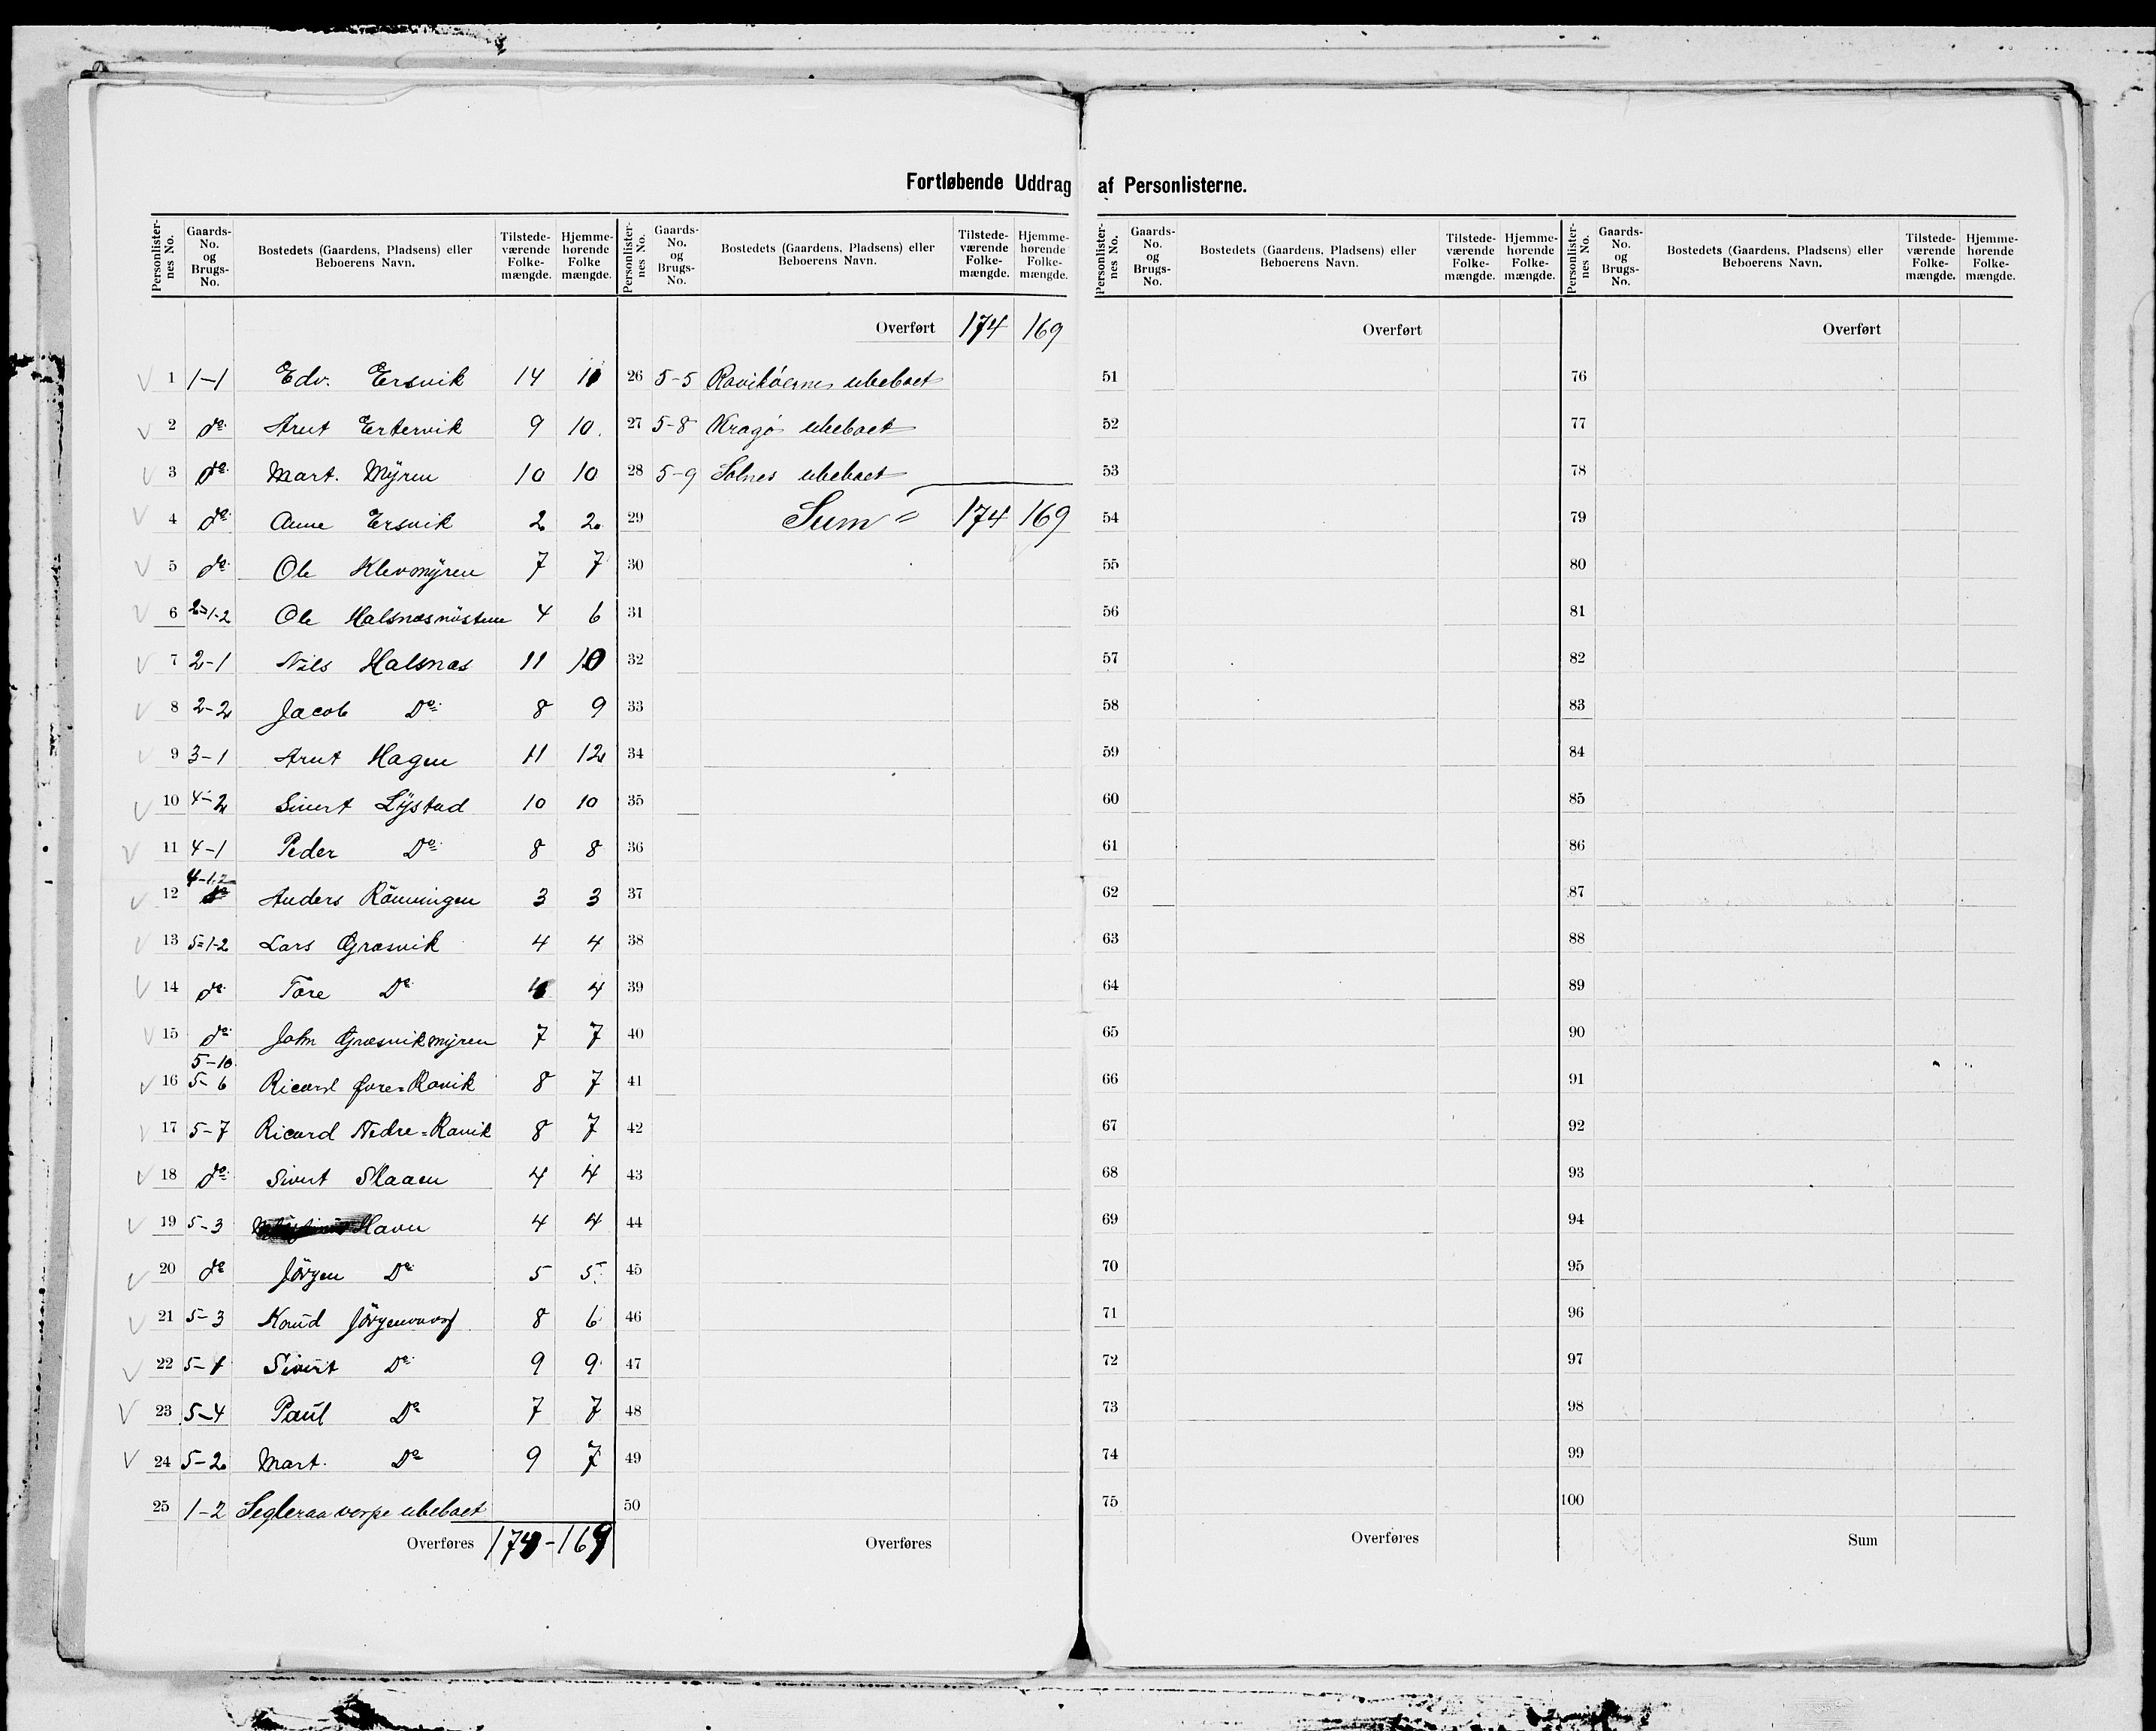 Fortløbende Uddrag af Personlisterne.
Personlister-nes No. | Gaards-No. og Brugs-No. | Bostedets (Gaardens, Pladsens) eller Beboerens Navn. | Tilstede-værende Folke-mængde. | Hjemme-hørende Folke mængde.
1 1-1 Edv. Ersvik 14 10
2 do Arnt Ertervik 9 10.
3 do Mart. Mÿren 10 10
4 do Anne Ersvik 2 2
5 do Ole Klevmÿren 7 7
6 2=1-2 Ole Halsnæsnústuen 4 6
7 2-1 Nils Halsnæs 11 10
8 2-2 Jacob Do 8 9
9 3-1 Arnt Hagen 11 12
10 4-2 Sivert Lÿstad 10 10
11 4-1 Peder Do 8 8
12 4-1,2 Anders Rönningen 3 3
13 5=1-2 Lars Græsvik 4 4
14 do Tore Do 4 4
15 do John Græsvikmÿren 7 7
16 5-10 5-6 Ricard Øvre=Ravik 8 7
17 5-7 Ricard Nedre=Ravik 8 7
18 do Sivert Slaaen 4 4
19 5-3 Havn 4 4
20 do Jörgen Do 5 5
21 5-3 Knud Jörgenvorf 8 6
22 5-1 Sivert Do 9 9
23 5-4 Paul Do 7 7
24 5-2 Mart. Do 9 7
25 1-2 Segleraa vorpe ubeboet
Overføres 174-169
Personlister-nes No. | Gaards-No. og Brugs-No. | Bostedets (Gaardens, Pladsens) eller Beboerens Navn. | Tilstede-værende Folke-mængde. | Hjemme-hørende Folke-mængde.
Overført 174 169
26 5-5 Ravikøerne ubeboet
27 5-8 Kragö ubeboet
28 5-9 Solnes ubeboet
29 Sum = 174 169
30
31
32
33
34
35
36
37
38
39
40
41
42
43
44
45
46
47
48
49
50
Overføres
Personlister-nes No. | Gaards-No. og Brugs-No. | Bostedets (Gaardens, Pladsens) eller Beboerens Navn. | Tilstede-værende Folke-mængde. | Hjemme-hørende Folke-mængde.
Overført
51
52
53
54
55
56
57
58
59
60
61
62
63
64
65
66
67
68
69
70
71
72
73
74
75
Overføres
Personlister-nes No. | Gaards-No. og Brugs-No. | Bostedets (Gaardens, Pladsens) eller Beboerens Navn. | Tilstede-værende Folke-mængde. | Hjemme-hørende Folke-mængde.
Overført
76
77
78
79
80
81
82
83
84
85
86
87
88
89
90
91
92
93
94
95
96
97
98
99
100
Sum